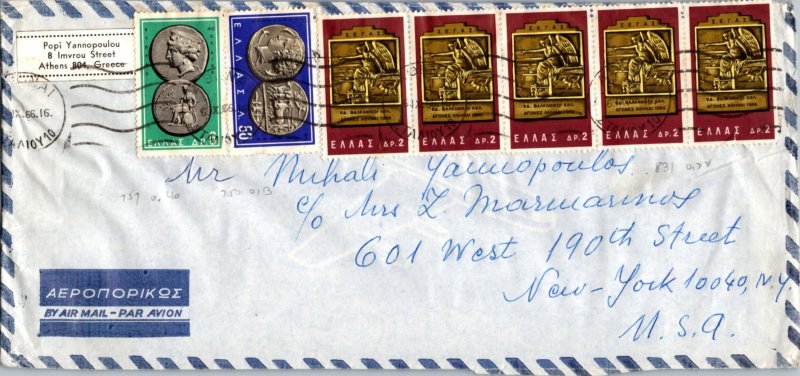 Popi Yannopoulou
8 Imvrou Street
Athens 804, Greece
ΕΛΛΑΣ ΔΡ.
ΕΛΛΑΣ Λ. 50
Σ.Ε.Γ.Α.Σ.
ΚΔ΄ ΒΑΛΚΑΝΙΚΟΙ ΑΘΛ.
ΑΓΩΝΕΣ ΑΘΗΝΑΙ 1965
ΕΛΛΑΣ ΔΡ. 2
Σ.Ε.Γ.Α.Σ.
ΚΔ΄ ΒΑΛΚΑΝΙΚΟΙ ΑΘΛ.
ΑΓΩΝΕΣ ΑΘΗΝΑΙ 1965
ΕΛΛΑΣ ΔΡ. 2
Σ.Ε.Γ.Α.Σ.
ΚΔ΄ ΒΑΛΚΑΝΙΚΟΙ ΑΘΛ.
ΑΓΩΝΕΣ ΑΘΗΝΑΙ 1965
ΕΛΛΑΣ ΔΡ. 2
Σ.Ε.Γ.Α.Σ.
ΚΔ΄ ΒΑΛΚΑΝΙΚΟΙ ΑΘΛ.
ΑΓΩΝΕΣ ΑΘΗΝΑΙ 1965
ΕΛΛΑΣ ΔΡ. 2
Σ.Ε.Γ.Α.Σ.
ΚΔ΄ ΒΑΛΚΑΝΙΚΟΙ ΑΘΛ.
ΑΓΩΝΕΣ ΑΘΗΝΑΙ 1965
ΕΛΛΑΣ ΔΡ. 2
IX.66.16.
Mr Mihali Yannopoulos
c/o Mrs Z. Marmarinos
601 West 190th Street
New-York 10040, N.Y.
U.S.A.
ΑΕΡΟΠΟΡΙΚΩΣ
BY AIR MAIL - PAR AVION